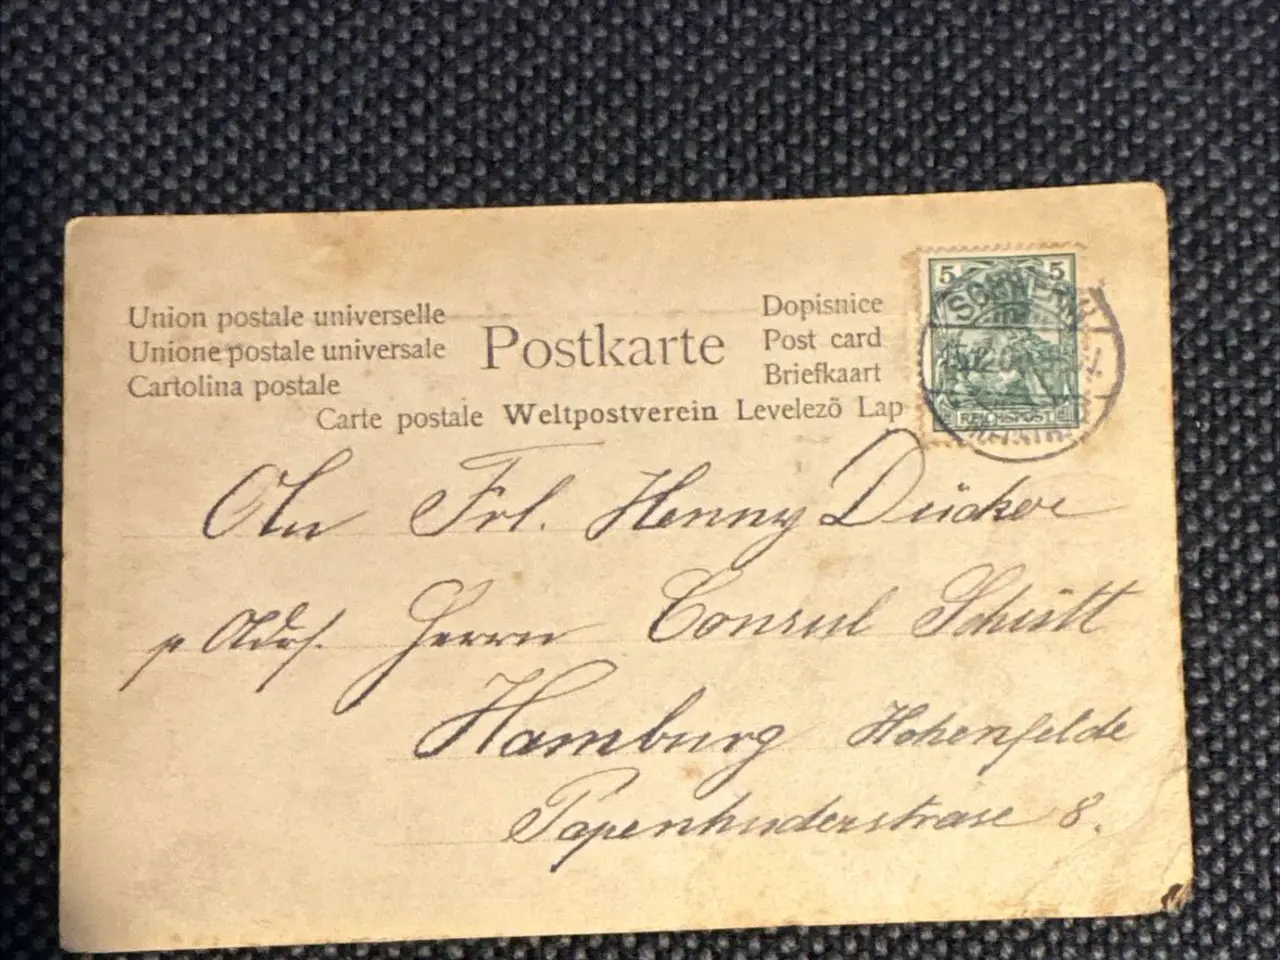 Union postale universelle
Unione postale universale
Cartolina postale
Postkarte
Dopisnice
Post card
Briefkaart
Carte postale Weltpostverein Levelező Lap
5 5
SCHWERIN
REICHSPOST
An Frl. Henny Dücker
p Adrs. Herrn Consul Schütt
Hamburg Hohenfelde
Papenhuderstrase 8.